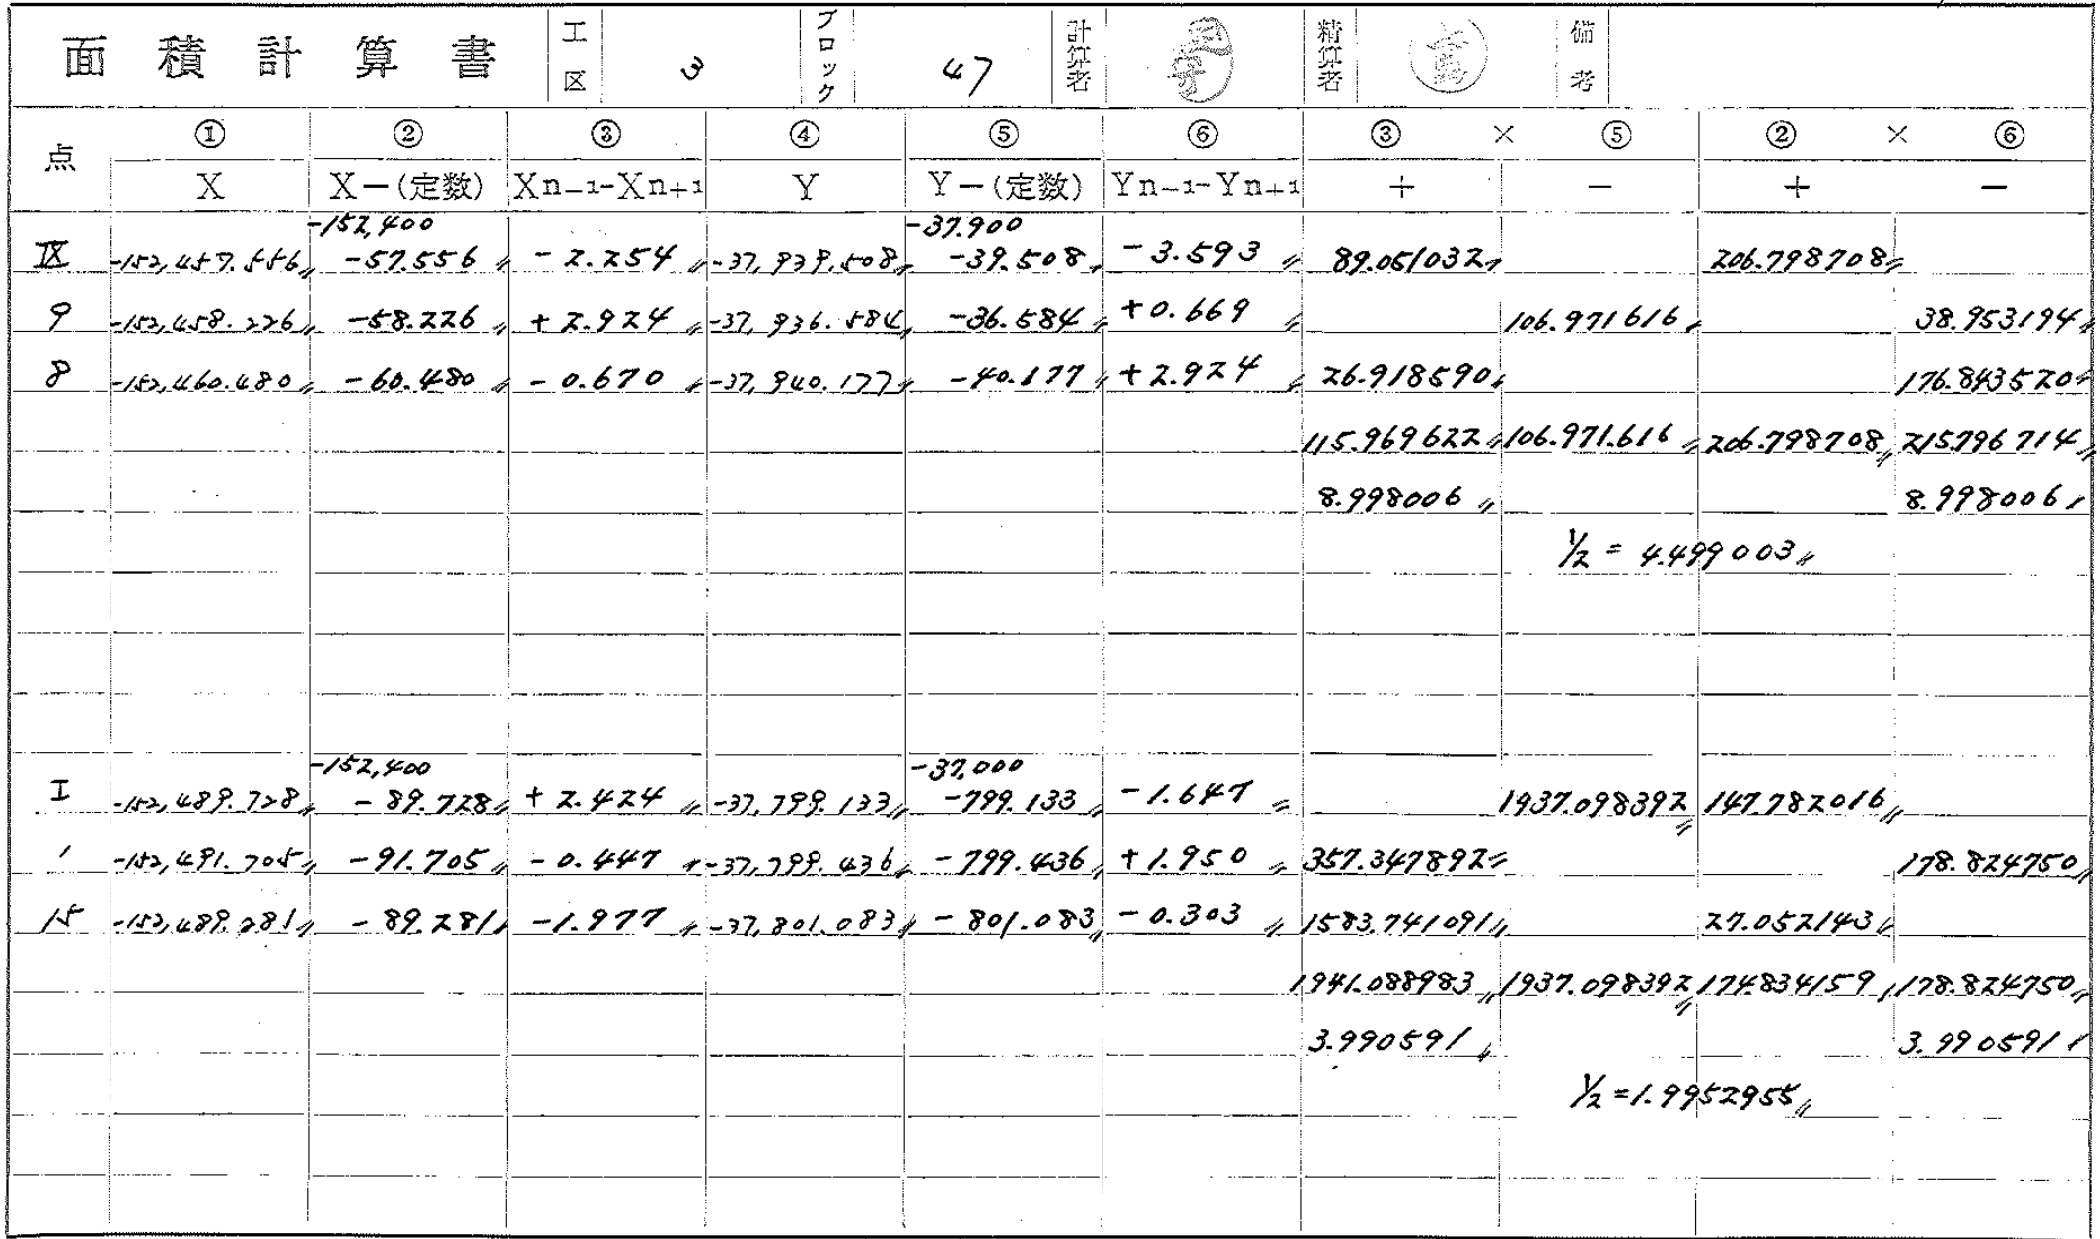 面積計算書 工区 3 ブロック 47 計算者 精算者 備考
点 ① ② ③ ④ ⑤ ⑥ ③ × ⑤ ② × ⑥
X X-(定数) Xn-1-Xn+1 Y Y-(定数) Yn-1-Yn+1 + - + -
-152,400 -37.900
IX -152,457.556 -57.556 -2.254 -37,939.508 -39.508 -3.593 89.051032 206.798708
9 -152,458.226 -58.226 +2.924 -37,936.584 -36.584 +0.669 106.971616 38.953194
8 -152,460.480 -60.480 -0.670 -37,940.177 -40.177 +2.924 26.918590 176.843520
115.969622 106.971.616 206.798708 215.796714
8.998006 8.998006
1/2 = 4.499003
-152,400 -37,000
I -152,489.728 -89.728 +2.424 -37,799.133 -799.133 -1.647 1937.098392 147.782016
1 -152,491.705 -91.705 -0.447 -37,799.436 -799.436 +1.950 357.347892 178.824750
15 -152,489.281 -89.281 -1.977 -37,801.083 -801.083 -0.303 1583.741091 27.052143
1941.088983 1937.098392 174.834159 178.824750
3.990591 3.990591
1/2 = 1.9952955